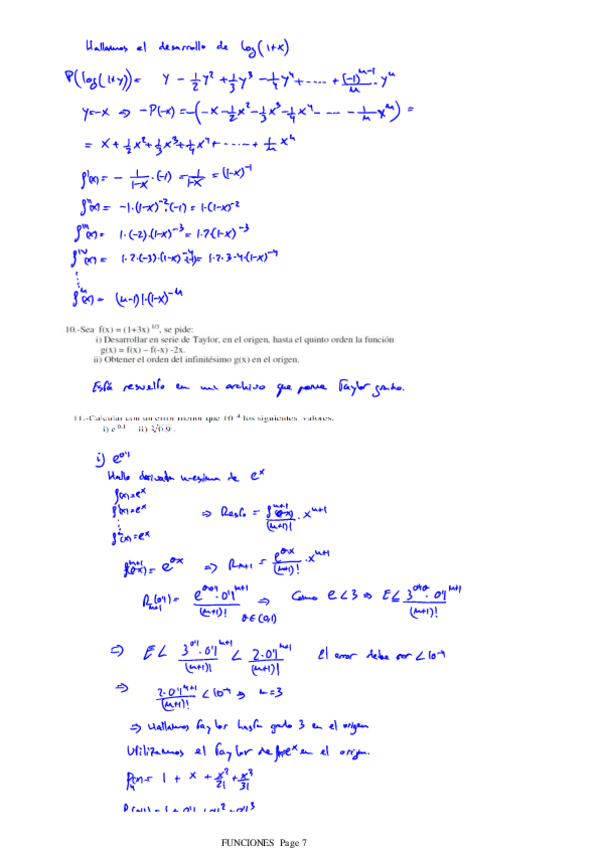 Hallamos el desarrollo de log(1+x)
P(log(1+y)) = y - 1/2 y² + 1/3 y³ - 1/4 y⁴ + .... + (-1)ⁿ⁻¹/n · yⁿ
y=-x ⇒ -P(-x) = -(-x - 1/2 x² - 1/3 x³ - 1/4 x⁴ - ... - 1/n xⁿ) =
= x + 1/2 x² + 1/3 x³ + 1/4 x⁴ + ..... + 1/n xⁿ
f'(x) = - 1/(1-x) · (-1) = 1/(1-x) = (1-x)⁻¹
f''(x) = -1·(1-x)⁻²·(-1) = 1·(1-x)⁻²
f'''(x) = 1·(-2)·(1-x)⁻³ = 1·2(1-x)⁻³
f^IV(x) = 1·2·(-3)·(1-x)⁻⁴(-1) = 1·2·3·4·(1-x)⁻⁴
⋮
fⁿ(x) = (n-1)!·(1-x)⁻ⁿ
10.-Sea f(x) = (1+3x)^1/3, se pide:
i) Desarrollar en serie de Taylor, en el origen, hasta el quinto orden la función
g(x) = f(x) – f(-x) -2x.
ii) Obtener el orden del infinitésimo g(x) en el origen.
Está resuelto en un archivo que pone Taylor
11.-Calcular con un error menor que 10⁻⁴ los siguientes valores.
i) e^0.1 ii) ∛0.9 .
i) e^0'1
Hallo derivada n-esima de eˣ
f(x)=eˣ
f'(x)=eˣ ⇒ Resto = fⁿ⁺¹(θx)/(n+1)! · xⁿ⁺¹
⋮
fⁿ(x)=eˣ
fⁿ⁺¹(θx) = e^θx ⇒ Rn+1 = e^θx/(n+1)! · xⁿ⁺¹
Rn+1(0'1) = e^θ0'1 · 0'1ⁿ⁺¹/(n+1)! ⇒ Como e<3 ⇒ E< 3^θ0'1 · 0'1ⁿ⁺¹/(n+1)!
θ∈(0,1)
⇒ E< 3^0'1 · 0'1ⁿ⁺¹/(n+1)! < 2·0'1ⁿ⁺¹/(n+1)! El error debe ser <10⁻⁴
⇒ 2·0'1ⁿ⁺¹/(n+1)! < 10⁻⁴ ⇒ n=3
⇒ Hallamos Taylor hasta grado 3 en el origen
Utilizamos el Taylor de f(x)=eˣ en el origen.
= 1 + x + x²/2! + x³/3!
FUNCIONES Page 7